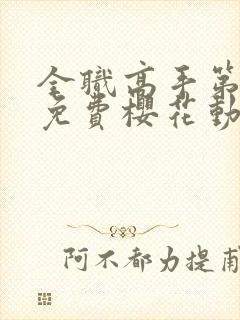 全職高手第
免費櫻花動
阿不都力提甫